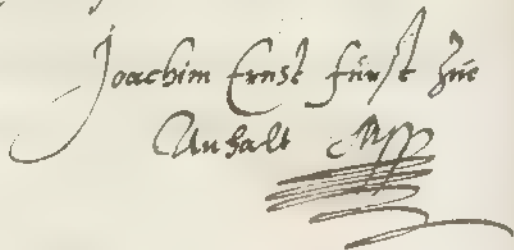 Joachim Ernst Fürst zue
Anhalt